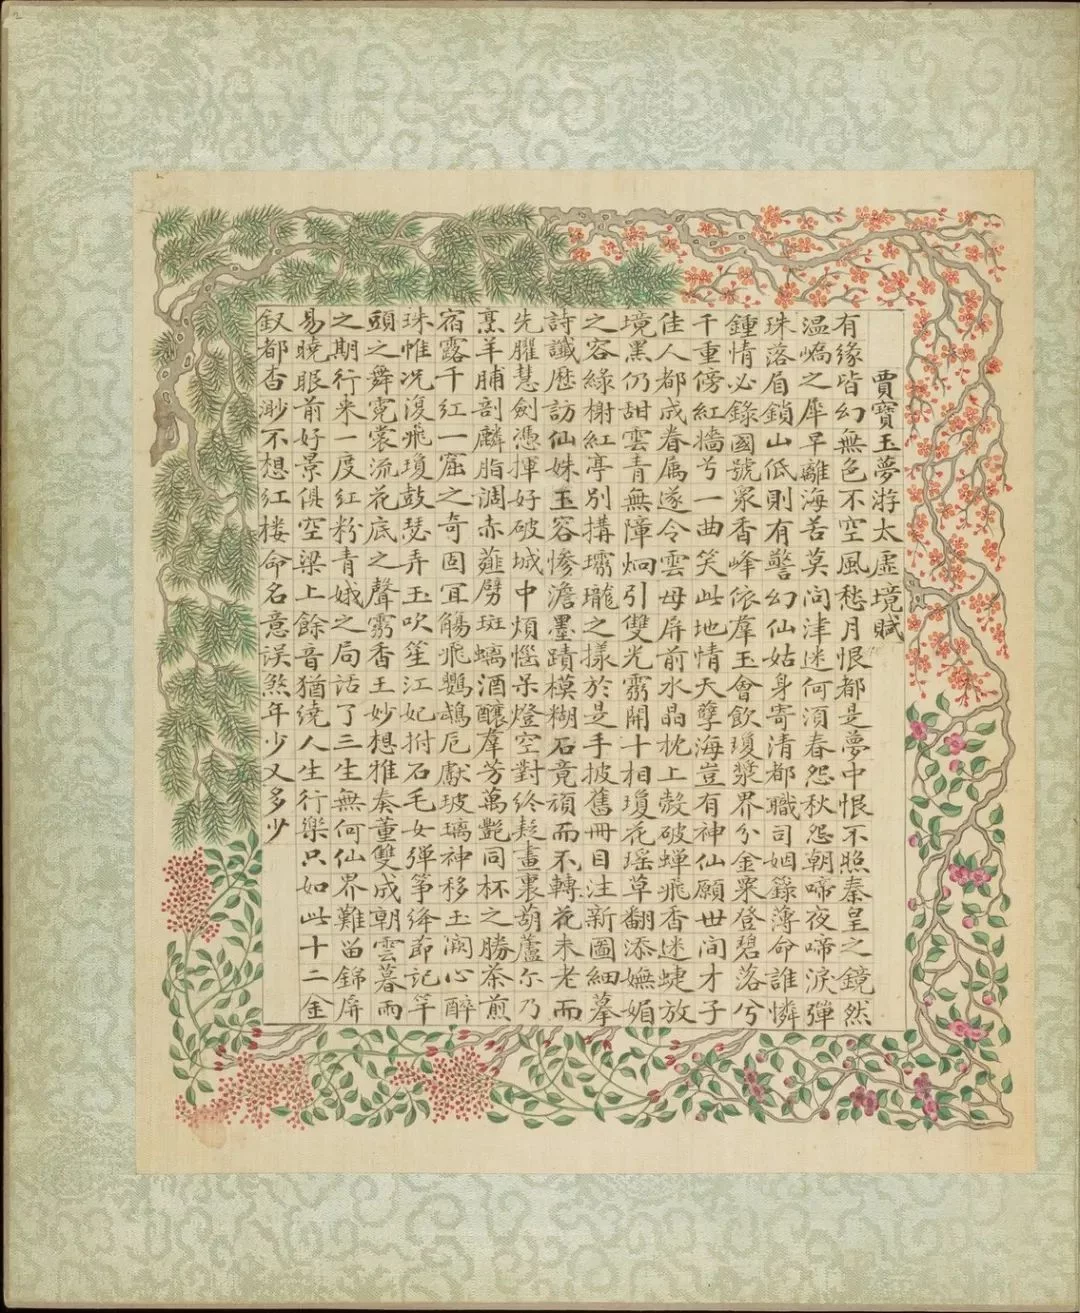 賈寶玉夢游太虛境賦
有緣皆幻無色不空風愁月恨都是夢中恨不照秦皇之鏡然
温嶠之犀早離海苦莫问津迷何須春怨秋怨朝啼夜啼淚彈
珠落眉鎖山低則有警幻仙姑身寄清都職司姻籙薄命誰憐
鍾情必錄國號眾香峰依羣玉會飲瓊漿界分金粟登碧落兮
千重傍紅墻兮一曲笑此地情天孽海豈有神仙願世间才子
佳人都成眷属遂令雲母屏前水晶枕上殼破蝉飛香迷蜨放
境黑仍甜雲青無障炯引雙光霧開十相瓊花瑤草翻添嫵媚
之容綠榭紅亭別搆瓏之様於是手披舊冊目注新圖細摹
詩讖歷訪仙姝玉容惨澹墨蹟模糊石竟頑而不轉花未老而
先臞慧劍憑揮好破城中煩惱呆燈空對終疑畫裏葫蘆尓乃
烹羊脯剖麟脂调赤薤劈斑螭酒釀羣芳萬艷同杯之勝茶煎
宿露千红一窟之奇固宜觴飛鸚鵡卮獻玻璃神移玉阙心醉
珠帷况復飛瓊鼓瑟弄玉吹笙江妃拊石毛女弹筝绛節記竿
頭之舞霓裳流花底之聲霧香王妙想雅奏董雙成朝雲暮雨
之期行来一度红粉青娥之局话了三生無何仙界難留錦屏
易曉眼前好景俱空梁上餘音猶繞人生行樂只如此十二金
釵都杳渺不想红楼命名意误煞年少又多少